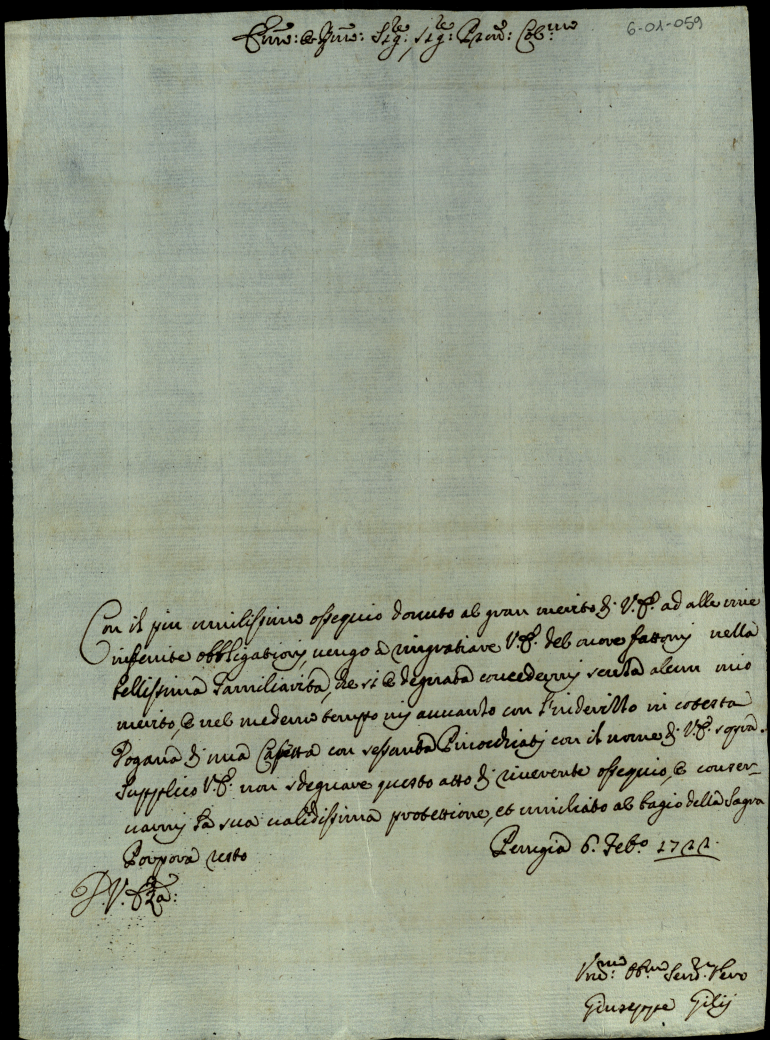 6-01-059
Emo: e Rmo: Sig:re, Sig:re Pron: Col:mo
Con il più umilissimo ossequio douuto al gran merito di V. E. ad alle mie
infinite obbligationi, uengo à ringratiare V. E. del onore fattomi nella
bellissima familiarità, che si è degnata concedermi senza alcun mio
merito, e nel medemo tempo mi auuanzo con l'indirillo in cotesta
Dogana di una Casetta con sessanta Pinocchiati con il nome di V. E. sopra.
Supplico V. E. non sdegnare questo atto di riuerente ossequio, e conser-
uarmi la sua ualidissima protettione, et umiliato al bagio della Sagra
Porpora resto
Perugia 6. Feb.o 1722.
D. V. Eza:
Vmo: Obmo Serre: Vero
Giuseppe Gilij